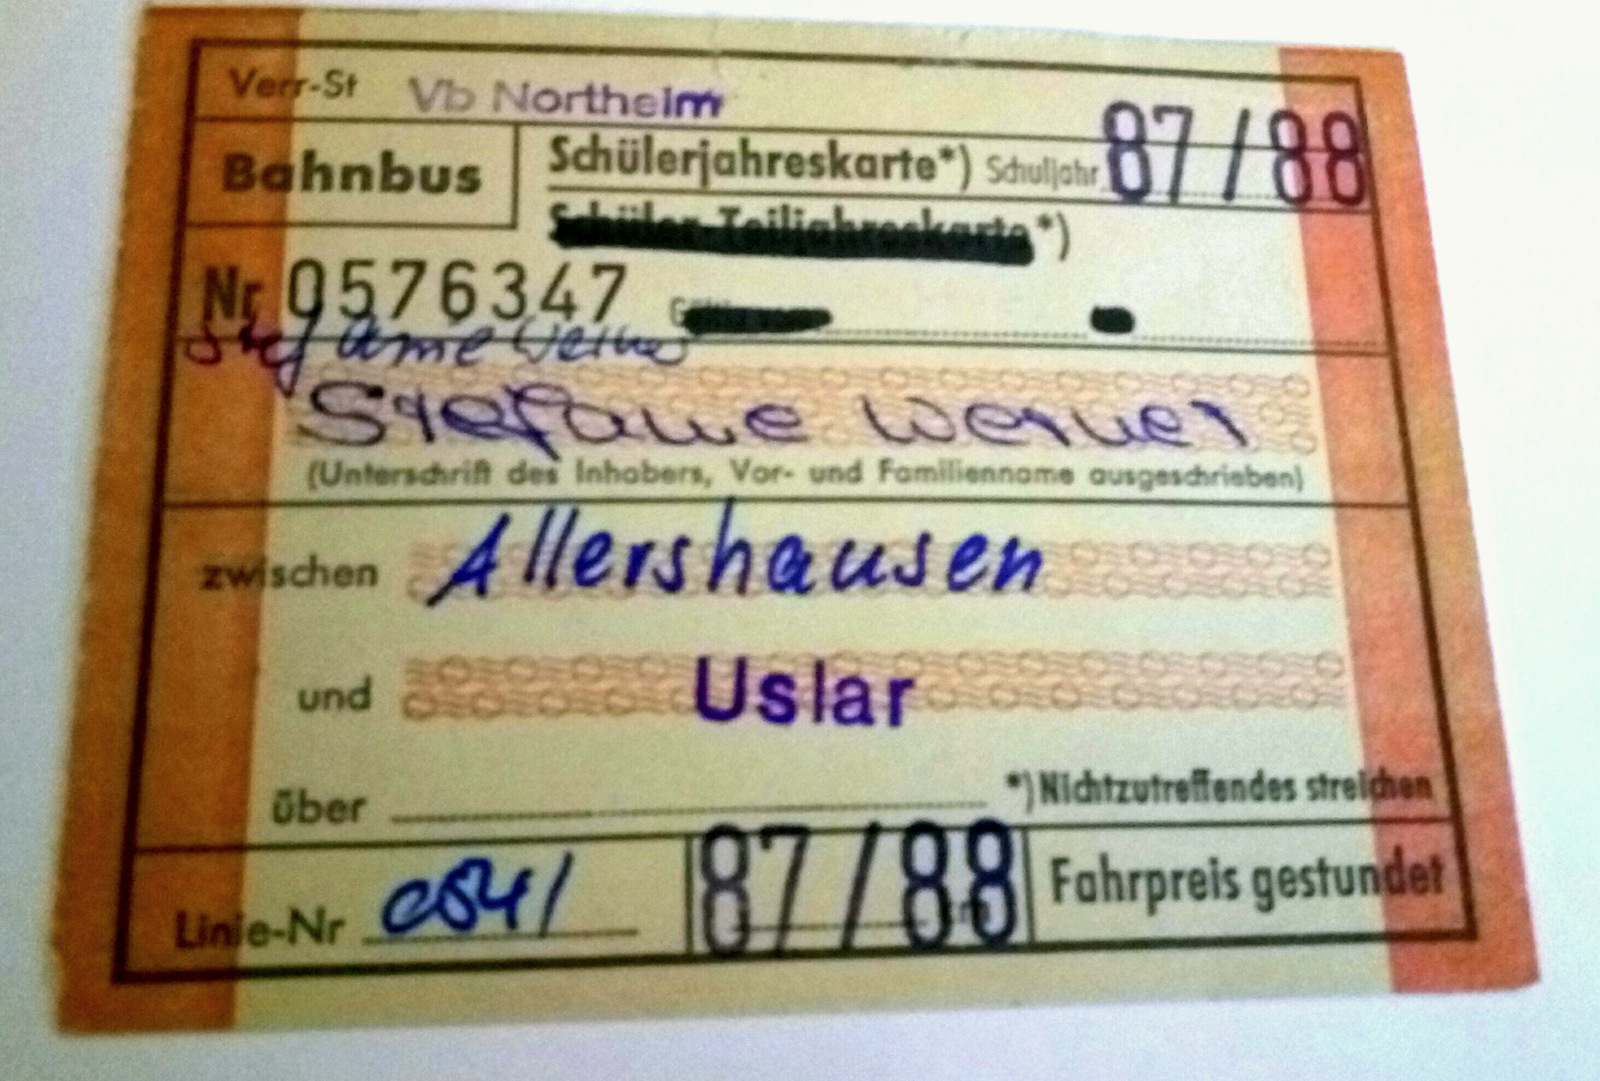 Verr-St Vb Northeim
Bahnbus Schülerjahreskarte*) Schuljahr 87/88
Schüler-Teiljahreskarte*)
Nr 0576347
Stefanie Werner
Stefanie Werner
(Unterschrift des Inhabers, Vor- und Familienname ausgeschrieben)
zwischen Allershausen
und Uslar
über *) Nichtzutreffendes streichen
Linie-Nr 87/88 Fahrpreis gestundet